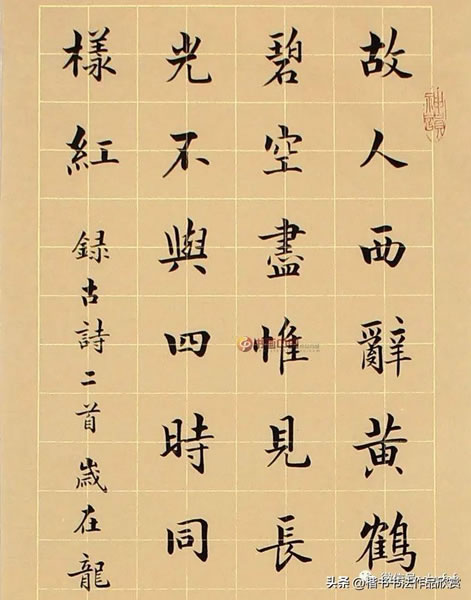 故人西辭黃鶴
碧空盡惟見長
光不與四時同
樣紅
録古詩二首歲在龍
头条@楷书书法作品欣赏